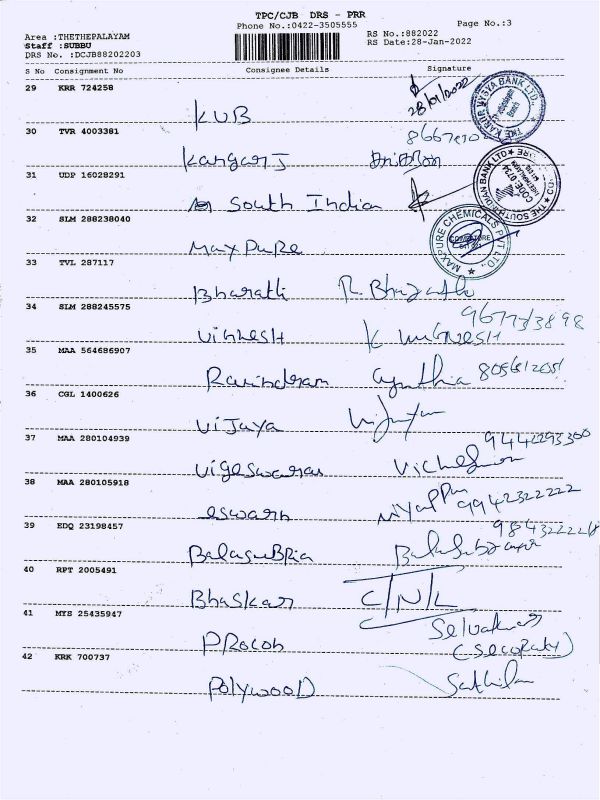 TPC/CJB DRS - PRR
Phone No.:0422-3505555
Page No.:3
Area :THETHEPALAYAM
Staff :SUBBU
DRS No. :DCJB88202203
RS No.:882022
RS Date:28-Jan-2022
S No Consignment No Consignee Details Signature
29 KRR 724258
KUB 28/01/2022
THE KARUR VYSYA BANK LTD.,
30 TVR 4003381
Kangaraj
31 UDP 16028291
South Indian
THE SOUTH INDIAN BANK LTD
CODE: 0734
32 SLM 288238040
Maxpure
MAXPURE CHEMICALS PVT LTD.,
COIMBATORE
33 TVL 287117
Bharath R. Bharath
34 SLM 288245575
9677313898
Vignesh K Vignesh
35 MAA 564686907
Ravindran Cynthia
36 CGL 1400626
Vijaya Vijaya
37 MAA 280104939
9442293300
Vigeswaran
38 MAA 280105918
eswarn 9942322222
39 EDQ 23198457
BalasuBRia
40 RPT 2005491
Bhaskar
41 MYS 25435947
PRocoh
42 KRK 700737
POLYWOOD